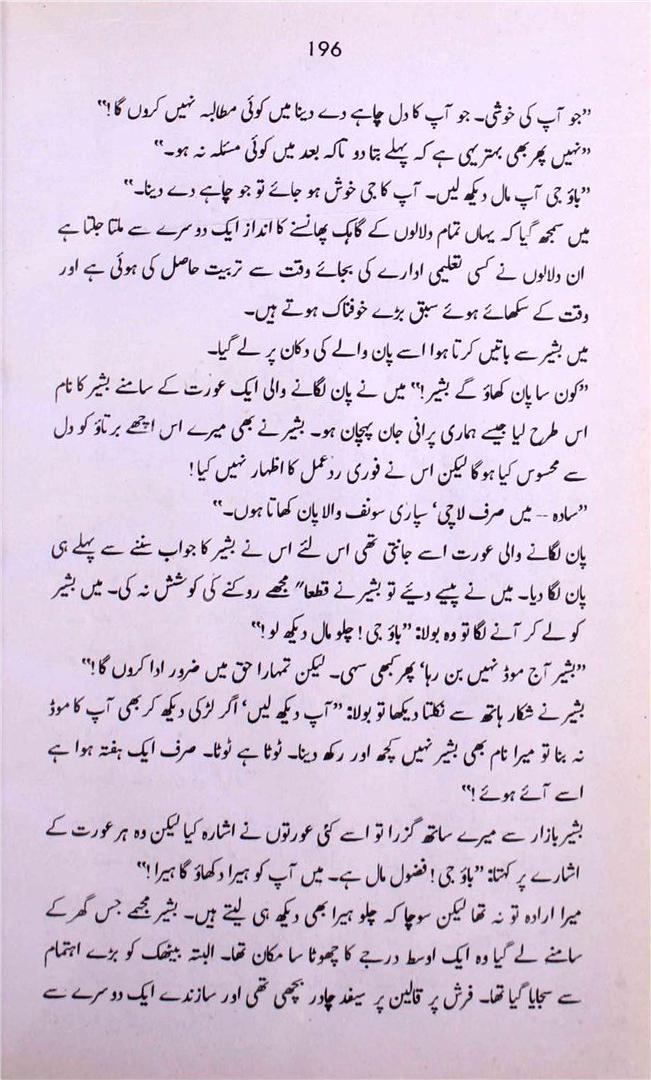 196
”جو آپ کی خوشی۔ جو آپ کا دل چاہے دے دینا میں کوئی مطالبہ نہیں کروں گا!“
”نہیں پھر بھی بہتر یہی ہے کہ پہلے بتا دو تاکہ بعد میں کوئی مسئلہ نہ ہو۔“
”باؤ جی آپ مال دیکھ لیں۔ آپ کا جی خوش ہو جائے تو جو چاہے دے دینا۔“
میں سمجھ گیا کہ یہاں تمام دلالوں کے گاہک پھانسنے کا انداز ایک دوسرے سے ملتا جلتا ہے
ان دلالوں نے کسی تعلیمی ادارے کی بجائے وقت سے تربیت حاصل کی ہوئی ہے اور
وقت کے سکھائے ہوئے سبق بڑے خوفناک ہوتے ہیں۔
میں بشیر سے باتیں کرتا ہوا اسے پان والے کی دکان پر لے گیا۔
”کون سا پان کھاؤ گے بشیر!“ میں نے پان لگانے والی ایک عورت کے سامنے بشیر کا نام
اس طرح لیا جیسے ہماری پرانی جان پہچان ہو۔ بشیر نے بھی میرے اس اچھے برتاؤ کو دل
سے محسوس کیا ہو گا لیکن اس نے فوری ردعمل کا اظہار نہیں کیا!
”سادہ -- میں صرف لاچی‘ سپاری سونف والا پان کھاتا ہوں۔“
پان لگانے والی عورت اسے جانتی تھی اس لئے اس نے بشیر کا جواب سننے سے پہلے ہی
پان لگا دیا۔ میں نے پیسے دیئے تو بشیر نے قطعا″ مجھے روکنے کی کوشش نہ کی۔ میں بشیر
کو لے کر آنے لگا تو وہ بولا: ”باؤ جی! چلو مال دیکھ لو!“
”بشیر آج موڈ نہیں بن رہا‘ پھر کبھی سہی۔ لیکن تمہارا حق میں ضرور ادا کروں گا!“
بشیر نے شکار ہاتھ سے نکلتا دیکھا تو بولا: ”آپ دیکھ لیں‘ اگر لڑکی دیکھ کر بھی آپ کا موڈ
نہ بنا تو میرا نام بھی بشیر نہیں کچھ اور رکھ دینا۔ ٹوٹا ہے ٹوٹا۔ صرف ایک ہفتہ ہوا ہے
اسے آئے ہوئے!“
بشیر بازار سے میرے ساتھ گزرا تو اسے کئی عورتوں نے اشارہ کیا لیکن وہ ہر عورت کے
اشارے پر کہتا: ”باؤ جی! فضول مال ہے۔ میں آپ کو ہیرا دکھاؤ گا ہیرا!“
میرا ارادہ تو نہ تھا لیکن سوچا کہ چلو ہیرا بھی دیکھ ہی لیتے ہیں۔ بشیر مجھے جس گھر کے
سامنے لے گیا وہ ایک اوسط درجے کا چھوٹا سا مکان تھا۔ البتہ بیٹھک کو بڑے اہتمام
سے سجایا گیا تھا۔ فرش پر قالین پر سیفد چادر بچھی تھی اور سازندے ایک دوسرے سے